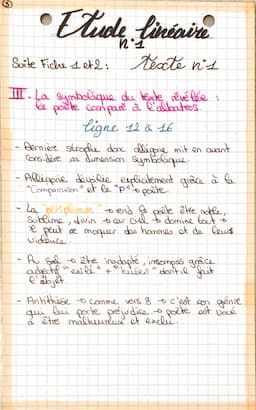 (3)
Etude linéaire
n°1
Suite Fiche 1 et 2 : texte n°1
III. La symbolique du texte révélée :
le poète comparé à l'albatros.
ligne 12 à 16
- Dernière strophe donc allégorie mit en avant
considère sa dimension symbolique.
- Allégorie dévoilée explicitement grâce à la
"Comparaison" et le "P" → poète.
- La "périphrase" → rend le poète être noble,
sublime, divin → car ciel → domine tout →
il peut se moquer des hommes et de leurs
violence.
- Au sol → être inadapté, incompris grâce
adjectif "exilé" + "huées" dont il fait
l'objet
- Antithèse → comme vers 8 → c'est son génie
qui lui porte préjudice → poète est voué
à être malheureux et exclu.